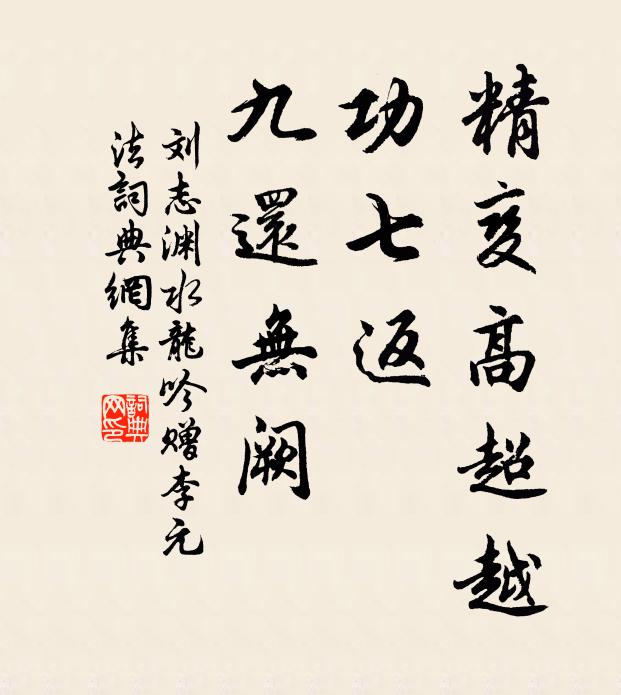 精变高超越
功七返
九還無闕
刘志渊水龍吟赠李元
法詞典網集
詞典
网印